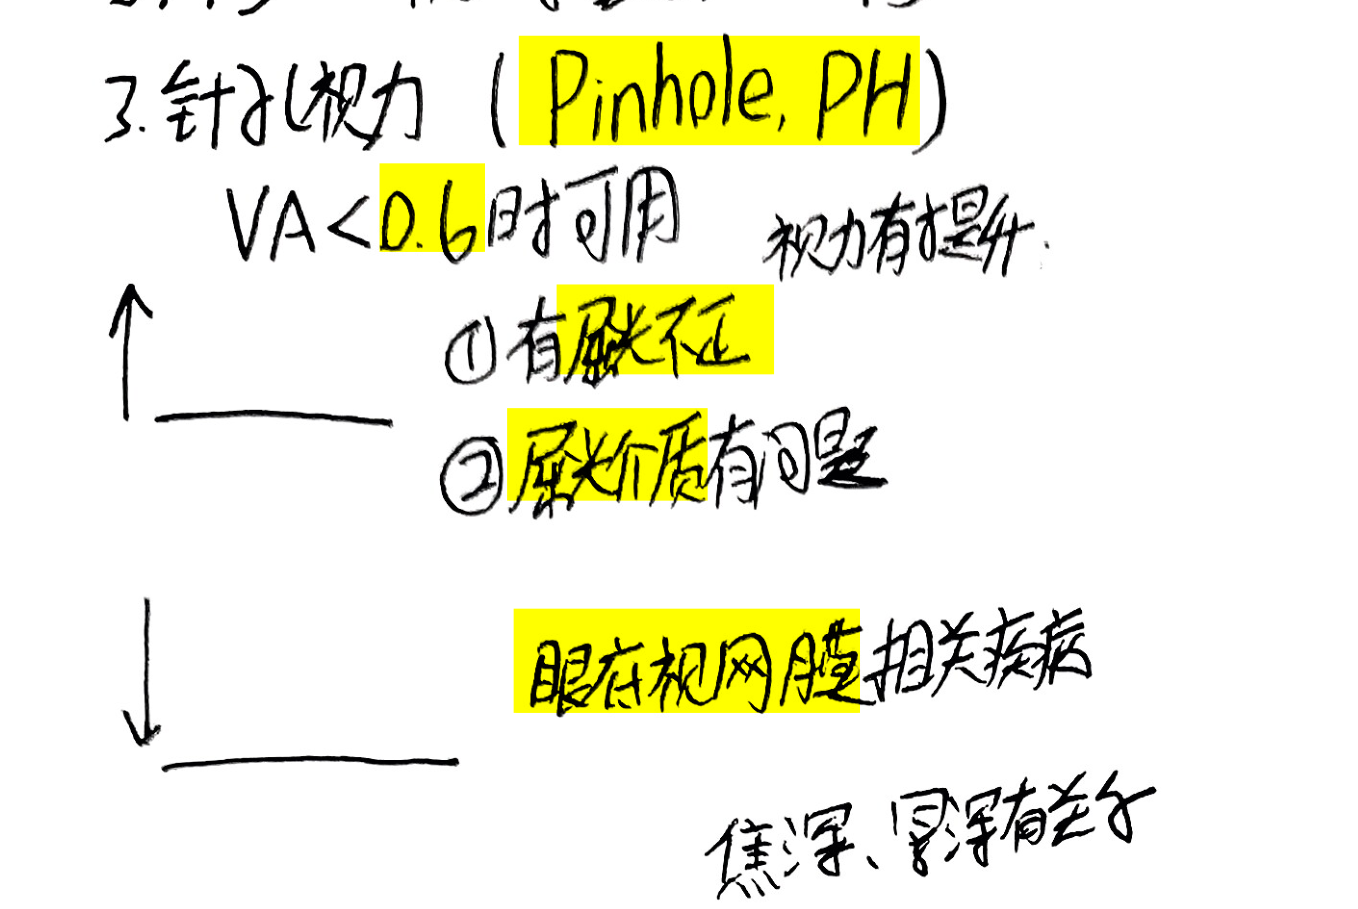 3.针孔视力（Pinhole, PH）
VA<0.6时可用 视力有提升.
↑ ①有屈光不正
②屈光介质有问题
↓ 眼底视网膜相关疾病
焦深、景深有关